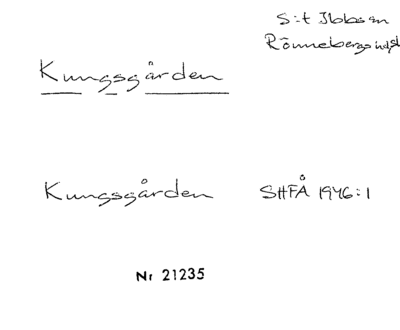 S:t Ibbs sn
Rönnebergs hd, Sk
Kungsgården
Kungsgården SHFÅ 1946:1
Nr 21235